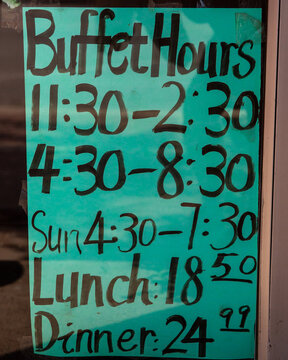 Buffet Hours
11:30-2:30
4:30-8:30
Sun 4:30-7:30
Lunch: 18 50
Dinner: 24 99